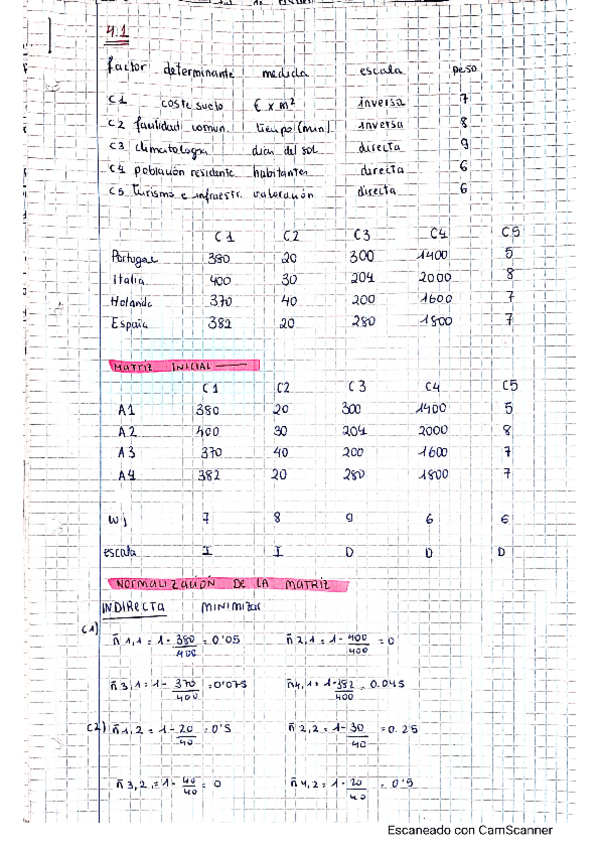 4.1
factor determinante medida escala peso
C1 coste suelo € x m² inversa 7
C2 facilidad comun. tiempo (min) inversa 8
C3 climatologia dias del sol directa 9
C4 población residente habitantes directa 6
C5 turismo e infraestr. valoración directa 6
C1 C2 C3 C4 C5
Portugal 380 20 300 1400 5
Italia 400 30 204 2000 8
Holanda 370 40 200 1600 7
España 382 20 280 1800 7
MATRIZ INICIAL
C1 C2 C3 C4 C5
A1 380 20 300 1400 5
A2 400 30 204 2000 8
A3 370 40 200 1600 7
A4 382 20 280 1800 7
wj 7 8 9 6 6
escala I I D D D
NORMALIZACIÓN DE LA MATRIZ
INDIRECTA MINIMIZAR
C1)
ñ1,1 = 1 - 380/400 = 0'05 ñ2,1 = 1 - 400/400 = 0
ñ3,1 = 1 - 370/400 = 0'075 ñ4,1 = 1 - 382/400 = 0.045
C2) ñ1,2 = 1 - 20/40 = 0'5 ñ2,2 = 1 - 30/40 = 0.25
ñ3,2 = 1 - 40/40 = 0 ñ4,2 = 1 - 20/40 = 0'5
Escaneado con CamScanner